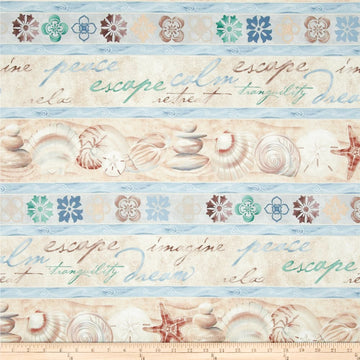 imagine peace escape calm escape peace
relax retreat tranquility dream
calm escape imagine peace
tranquility dream relax escape